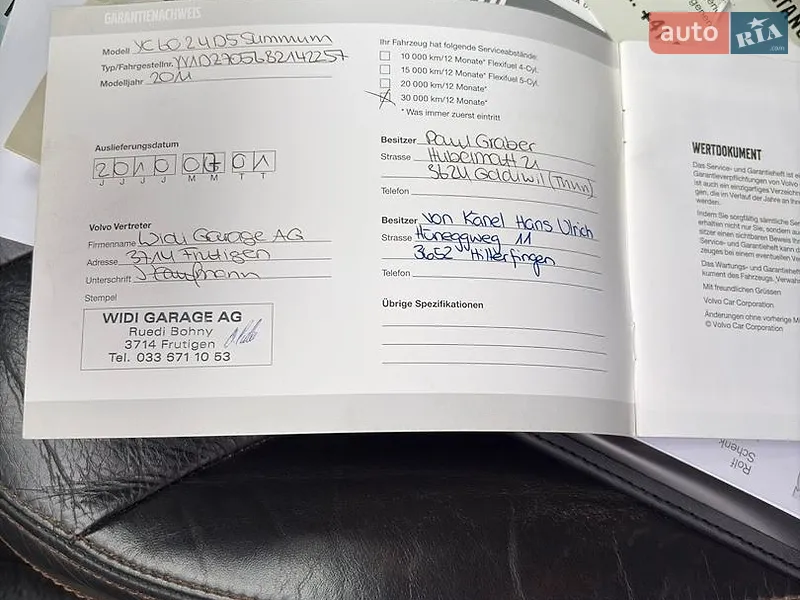 GARANTIENACHWEIS
Modell XC60 2.4 D5 Summum
Typ/Fahrgestellnr. YV1DZ7056B2142257
Modelljahr 2011
Auslieferungsdatum
2010 07 01
J J J J M M T T
Volvo Vertreter
Firmenname Widi Garage AG
Adresse 3714 Frutigen
Unterschrift
Stempel
WIDI GARAGE AG
Ruedi Bohny
3714 Frutigen
Tel. 033 671 10 53
Ihr Fahrzeug hat folgende Serviceabstände:
10 000 km/12 Monate* Flexifuel 4-Cyl.
15 000 km/12 Monate* Flexifuel 5-Cyl.
20 000 km/12 Monate*
30 000 km/12 Monate*
* Was immer zuerst eintritt
Besitzer Paul Graber
Strasse Hubelmatt 21
3624 Goldiwil (Thun)
Telefon
Besitzer von Känel Hans Ulrich
Strasse Hüneggweg 11
3652 Hilterfingen
Telefon
Übrige Spezifikationen
WERTDOKUMENT
Das Service- und Garantieheft ist ei
Garantieverpflichtungen von Volvo
ist auch ein einzigartiges Verzeichn
gen, die im Verlauf der Jahre an Ihr
werden.
Indem Sie sorgfältig sämtliche Ser
erhalten nicht nur Sie, sondern au
sitzer einen sichtbaren Beweis Ih
Service- und Garantieheft kann d
zeuges bei einem eventuellen Ve
Das Wartungs- und Garantiehef
kument des Fahrzeugs. Verwah
Mit freundlichen Grüssen
Volvo Car Corporation
Änderungen ohne vorherige Mi
© Volvo Car Corporation
Rolf
Schenk
auto RIA .com